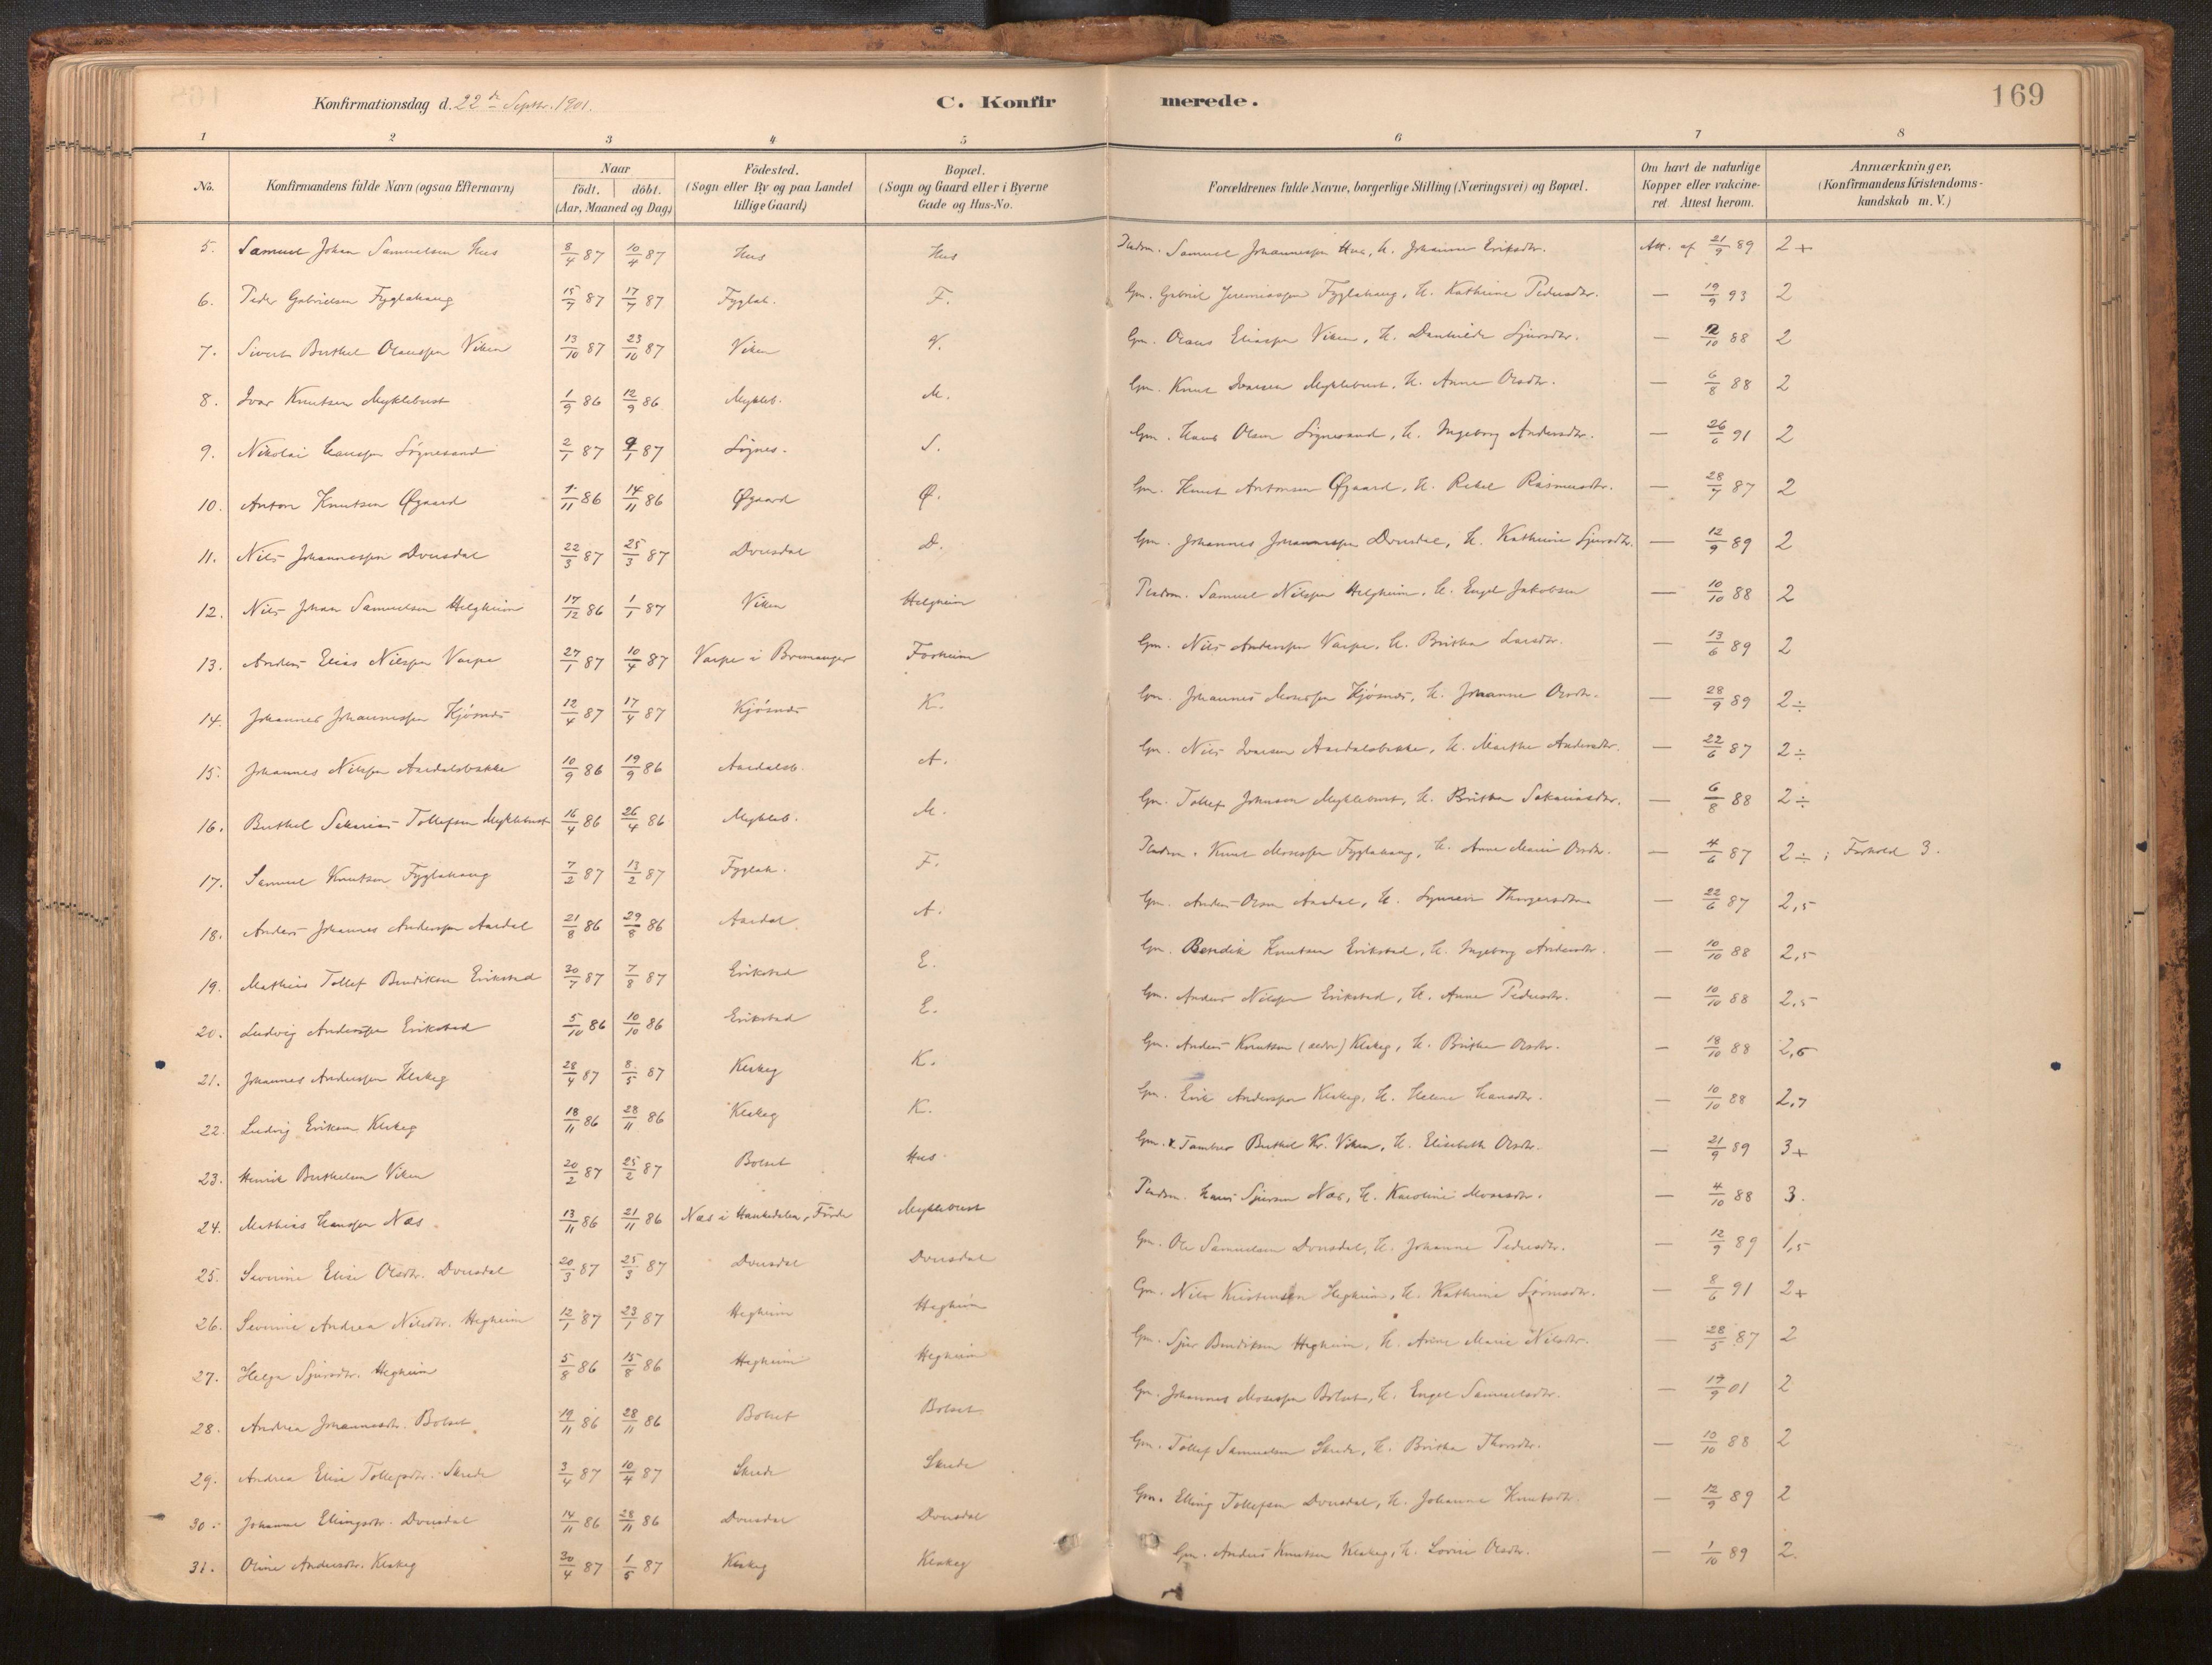 Konfirmationsdag d. 22de Septbr. 1901.
C. Konfirmerede.
169
1 2 3 4 5 6 7 8
No. Konfirmandens fulde Navn (ogsaa Efternavn) Naar født. døbt. (Aar, Maaned og Dag) Födested. (Sogn eller By og paa Landet tillige Gaard) Bopæl. (Sogn og Gaard eller i Byerne Gade og Hus-No. Forældrenes fulde Navne, borgerlige Stilling (Næringsvei) og Bopæl. Om havt de naturlige Kopper eller vakcineret. Attest herom. Anmærkninger, (Konfirmandens Kristendomskundskab m. V.)
5. Samuel Johan Samuelsen Hus 8/4 87 10/4 87 Hus Hus Pladsm. Samuel Johannessen Hus, H. Johanne Eriksdtr. Att. af 21/9 89 2+
6. Peder Gabrielsen Fyglehaug 15/7 87 17/7 87 Fygleh. F. Gm. Gabriel Jeremiassen Fyglehaug, H. Kathrine Pedersdtr. — 19/9 93 2
7. Sivert Berthel Olaussen Viken 13/10 87 23/10 87 Viken V. Gm. Olaus Eliassen Viken, H. Danhilde Sjursdtr. — 12/10 88 2
8. Ivar Knutsen Myklebust 1/9 86 12/9 86 Mykleb. M. Gm. Knut Ivarsen Myklebust, H. Anne Olsdtr. — 6/8 88 2
9. Nikolai Hanssen Sögnesand 2/1 87 9/1 87 Sögnes. S. Gm. Hans Olsen Sögnesand, H. Ingeborg Andersdtr. — 26/6 91 2
10. Anton Knutsen Øgaard 1/11 86 14/11 86 Øgaard Ø. Gm. Knut Antonsen Øgaard, H. Rakel Rasmusdtr. — 28/7 87 2
11. Nils Johannessen Dvergsdal 22/3 87 25/3 87 D. Gm. Johannes Johannessen H. Kathrine Sjursdtr. — 12/9 89 2
12. Nils Johan Samuelsen Helgheim 17/12 86 1/1 87 Viken Helgheim Pladsm. Samuel Nilssen Helgheim, H. Engel Jakobsen — 10/10 88 2
13. Anders Elias Nilssen Varpe 27/1 87 10/4 87 Varpe i Bremanger Gm. Nils Anderssen Varpe, H. Britha Larsdtr. — 13/6 89 2
14. Johannes Johannessen Kjösnæs 12/4 87 17/4 87 Kjösnæs K. Gm. Johannes Monssen Kjösnæs, H. Johanne Olsdtr. — 28/9 89 2÷
15. Johannes Nilssen Aardalsbakke 10/9 86 19/9 86 Aardalsb. A. Gm. Nils Ivarsen Aardalsbakke, H. Marthe Andersdtr. — 22/6 87 2÷
16. Berthel Sakarias Tollefsen Myklebust 16/4 86 26/4 86 Mykleb. M. Gm. Tollef Johnsen Myklebust, H. Britha Sakariasdtr. — 6/8 88 2÷
17. Samuel Knutsen Fyglehaug 7/2 87 13/2 87 Fygleh. F. Pladsm. Knut Mosessen Fyglehaug, H. Anne Marie Olsdtr. — 4/6 87 2÷; Forhold 3.
18. Anders Johannes Anderssen Aardal 21/8 86 29/8 86 Aardal A. Gm. Anders Olsen Aardal, H. Synneve — 22/6 87 2,5
19. Mathias Tollef Bendiksen Erikstad 30/7 87 7/8 87 Erikstad E. Gm. Bendik Knutsen Erikstad, H. Ingeborg Andersdtr. — 10/10 88 2,5
20. Ludvig Anderssen Erikstad 5/10 86 10/10 86 Erikstad E. Gm. Anders Nilssen Erikstad, H. Anne Pedersdtr. — 10/10 88 2,5
21. Johannes Anderssen Klakeg 28/4 87 8/5 87 Klakeg K. Gm. Anders Knutsen (ældre) Klakeg, H. Britha Olsdtr. — 18/10 88 2,6
22. Ludvig Eriksen Klakeg 18/11 86 28/11 86 Klakeg K. Gm. Erik Anderssen Klakeg, H. Helene Hansdtr. — 10/10 88 2,7
23. Henrik Berthelsen Viken 20/2 87 25/2 87 Bolset Hus Gm. & Tambur Berthel Kr. Viken, H. Elisebeth Olsdtr. — 21/9 89 3+
24. Mathias Hanssen Næs 13/11 86 21/11 86 Næs i Haukedalen, Förde Myklebust Pladsm. Hans Sjursen Næs, H. Karoline Mosesdtr. — 4/10 88 3.
25. Severine Elise Olsdtr. Dvergsdal 20/3 87 25/3 87 Gm. Ole Samuelsen H. Johanne Pedersdtr. — 12/9 89 1,5
26. Severine Andrea Nilsdtr. Hegheim 12/1 87 23/1 87 Hegheim Hegheim Gm. Nils Kristensen Hegheim, H. Kathrine — 8/6 91 2+
27. Helga Sjursdtr. Hegheim 5/8 86 15/8 86 Hegheim Hegheim Gm. Sjur Bendiksen Hegheim, H. Anne Marie Nilsdtr. — 28/5 87 2
28. Andrea Johannesdtr. Bolset 19/11 86 28/11 86 Bolset Bolset Gm. Johannes Mosessen Bolset, H. Engel Samuelsdtr. — 17/9 01 2
29. Andrea Elise Tollefsdtr. Skrede 3/4 87 10/4 87 Skrede Skrede Gm. Tollef Samuelsen Skrede, H. Britha Thorsdtr. — 10/10 88 2
30. Johanne Ellingsdtr. 14/11 86 28/11 86 Gm. Elling Tollefsen H. Johanne Knutsdtr. — 12/9 89 2
31. Oline Andersdtr. Klakeg 30/4 87 1/5 87 Klakeg Klakeg Gm. Anders Knutsen Klakeg, H. Lovise Olsdtr. — 1/10 89 2.